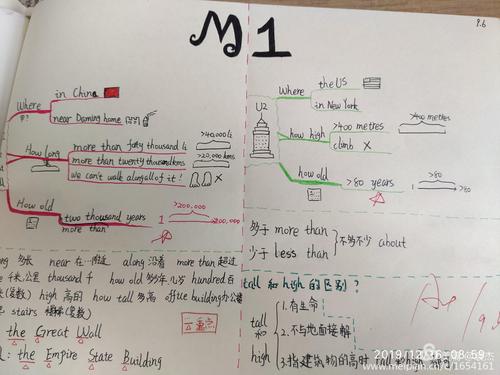 M1
9.6
Where
in China
near Daming home
How long
more than forty thousand li
>40,000 li
more than twenty thousand kms
>20,000 kms
we can't walk along all of it!
How old
two thousand years
more than
>200,000
1
>200,000
U2
Where
the US
in New York
how high
>400 metres
>400 metres
climb ×
how old
>80 years
1
>80
>80
多于 more than
少于 less than
不多不少 about
多长 near 在…附近 along 沿着 more than 超过
千米,公里 thousand 千 how old 多少年,几岁 hundred 百
(复数) high 高的 how tall 多高 office building 办公
stairs 楼梯(复数)
重点
the Great Wall
: the Empire State Building
tall 和 high 的区别?
tall
和
high
1.有生命
2.不与地面接触
3.指建筑物的高时 tall 和 high
2019/12/26 08:59
www.meipian.cn/1654161